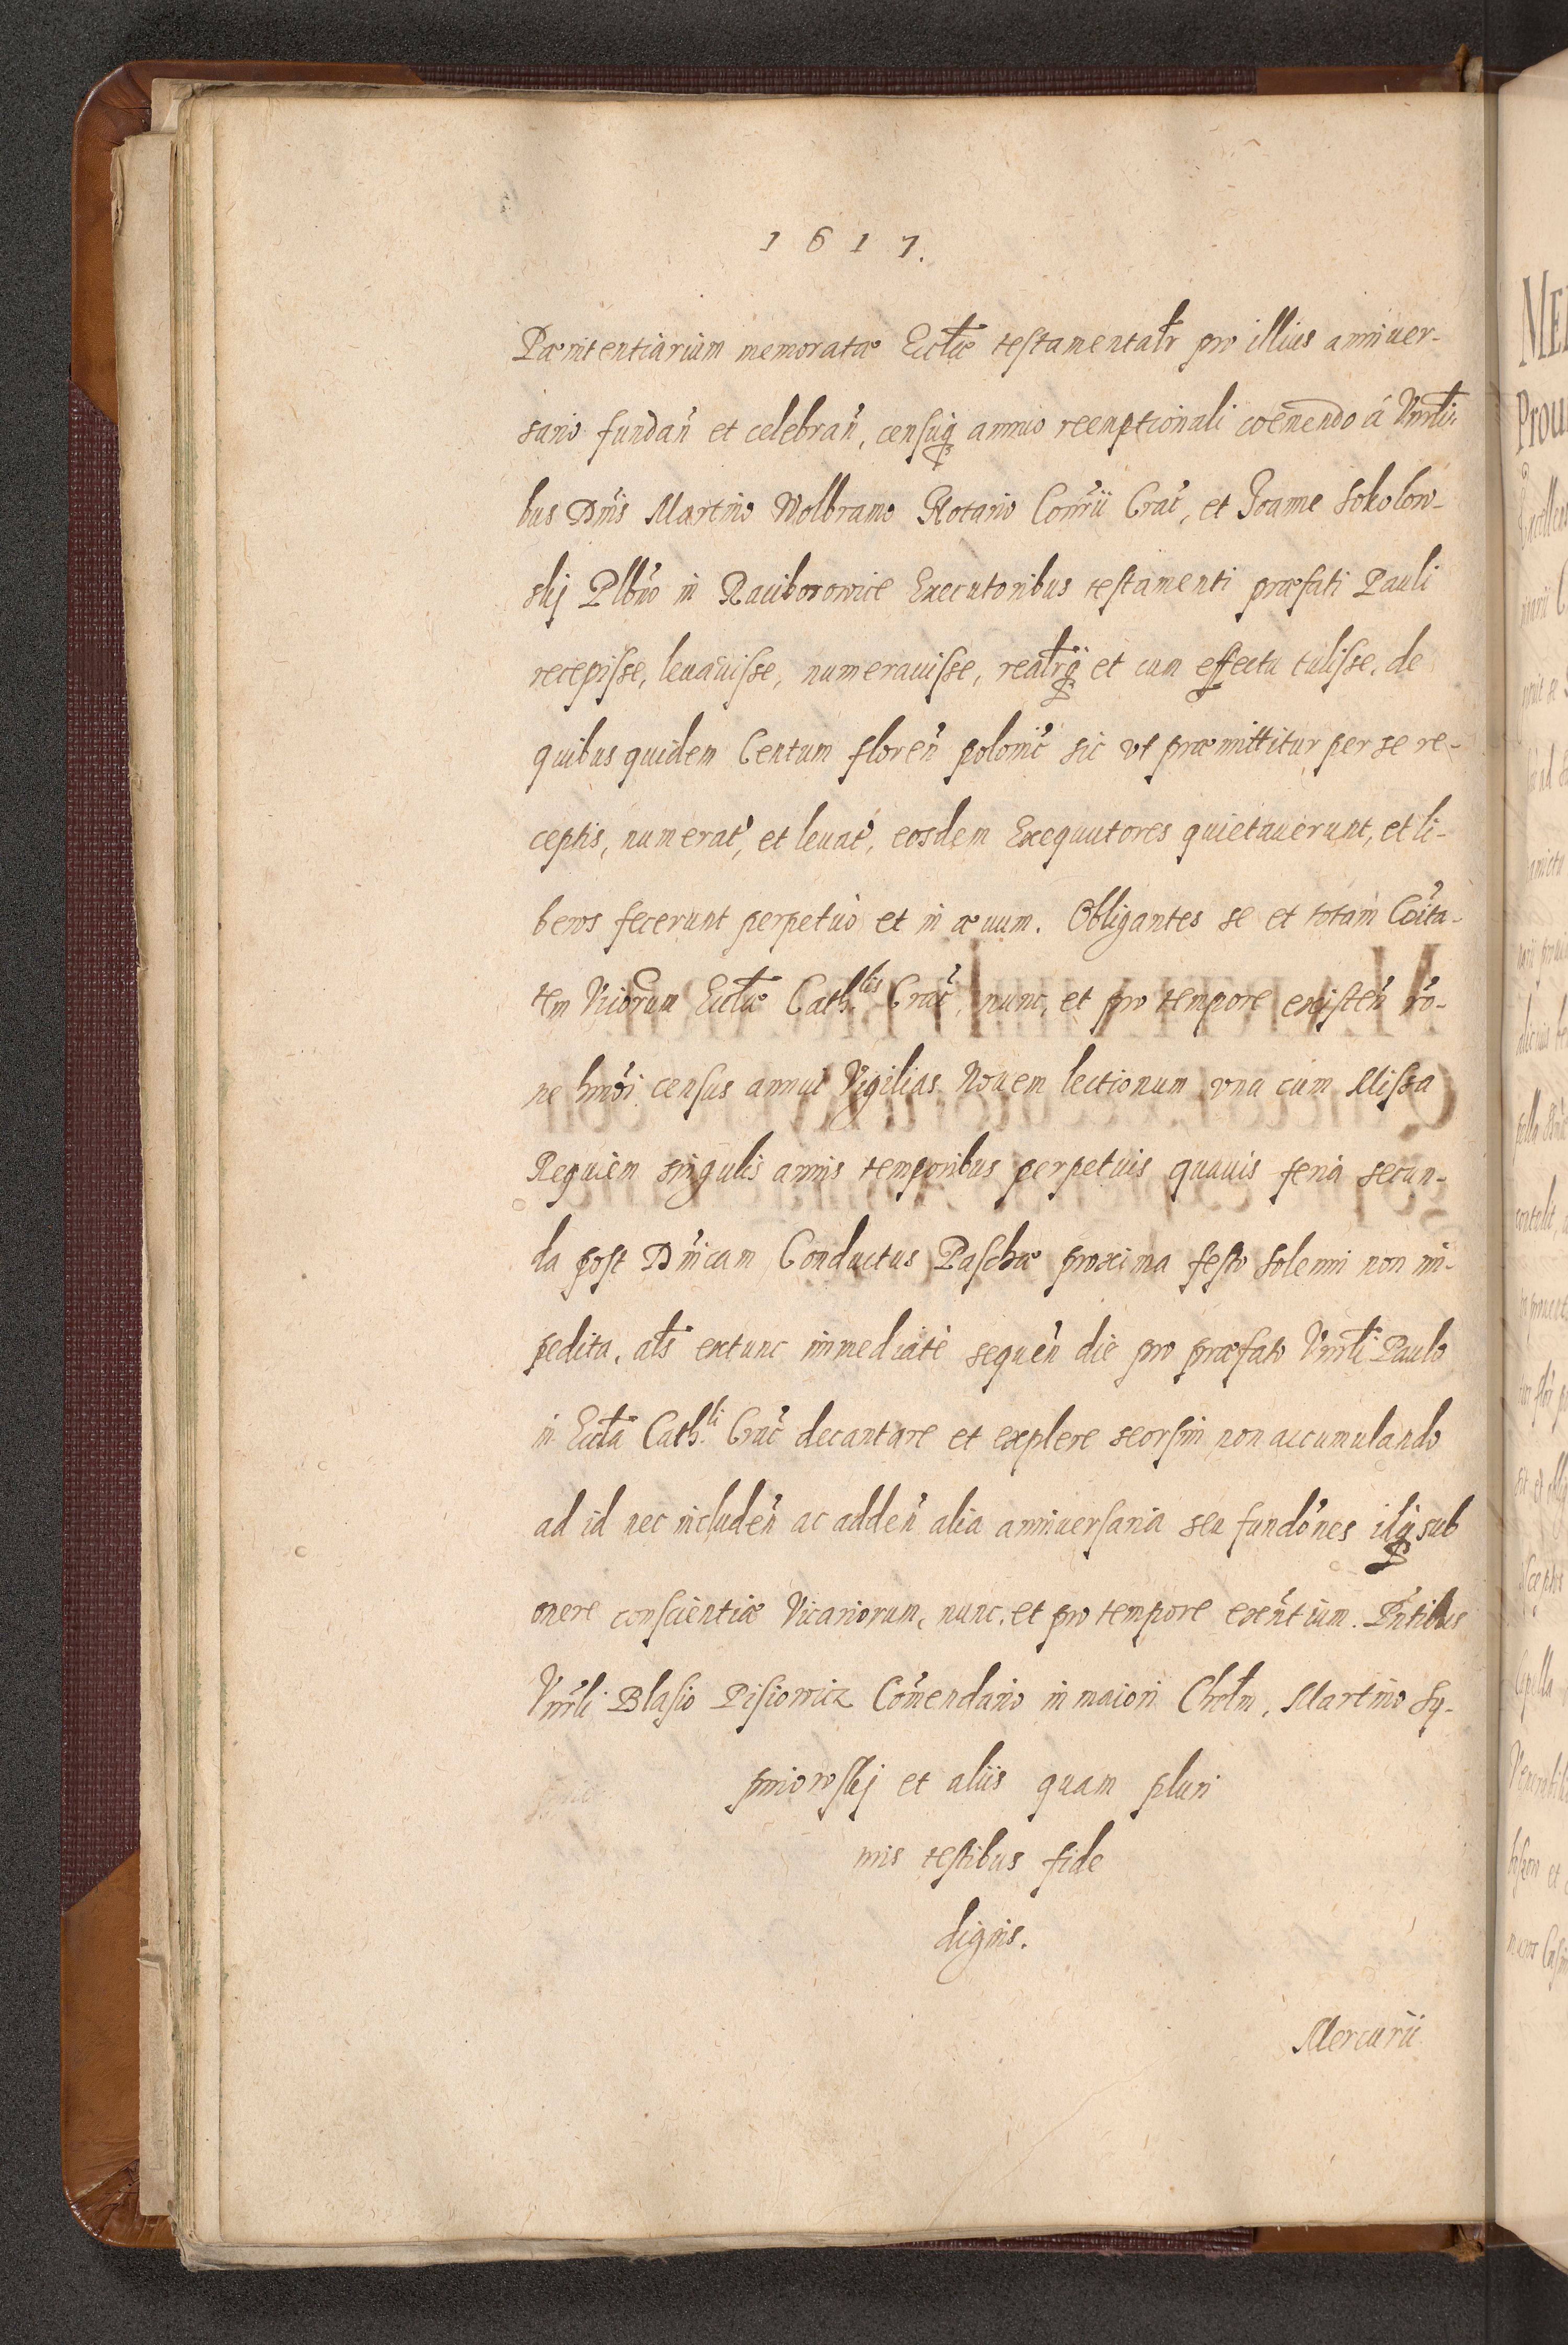 1617.
Pænitentiarium memoratæ Ecctæ testamentatr pro illius anniuer-
sario fundan̄ et celebran̄, censuq annuo reemptionali coemendo á Vnrli-
bus Dnis Martino Wolbramo Notario Consrii Crac̄, et Joanne Sokolow-
skj Plbno in Raciborowice Executoribus testamenti præfati Pauli
recepisse, leuauisse, numerauisse, realrq et cum effectu tulisse. de
quibus quidem Centum floren̄ polonic̄ sic vt præmittitur per se re-
ceptis, numerat̄, et leuat̄, eosdem Exequutores quietauerunt, et li-
beros fecerunt perpetuò et in æuum. Obligantes se et totam Cōita-
tem Vicrorum Ecctæ Cath.lis Crac̄, nunc, et pro tempore existen̄ rō-
ne hmōi census annui Vigilias Nouem lectionum vna cum Missa
Requiem singulis annis temporibus perpetuis quauis feria secun-
da post Dnicam Conductus Paschæ proxima festo solemni non im-
pedita, als extunc immediatè sequen̄ die pro præfato Vnrli Paulo
in Eccta Cath.li Crac̄ decantare et explere seorsim non accumulando
ad id nec includen̄ ac adden̄ alia anniuersaria seu fundōnes idq sub
onere conscientiæ Vicariorum, nunc. et pro tempore exēntium. Pn̄tibus
Vnrli Blasio Pisiowicz Cōmendario in maiori Chelm, Martino Sy-
pniowskj et aliis quam pluri
mis testibus fide
dignis.
Mercurii